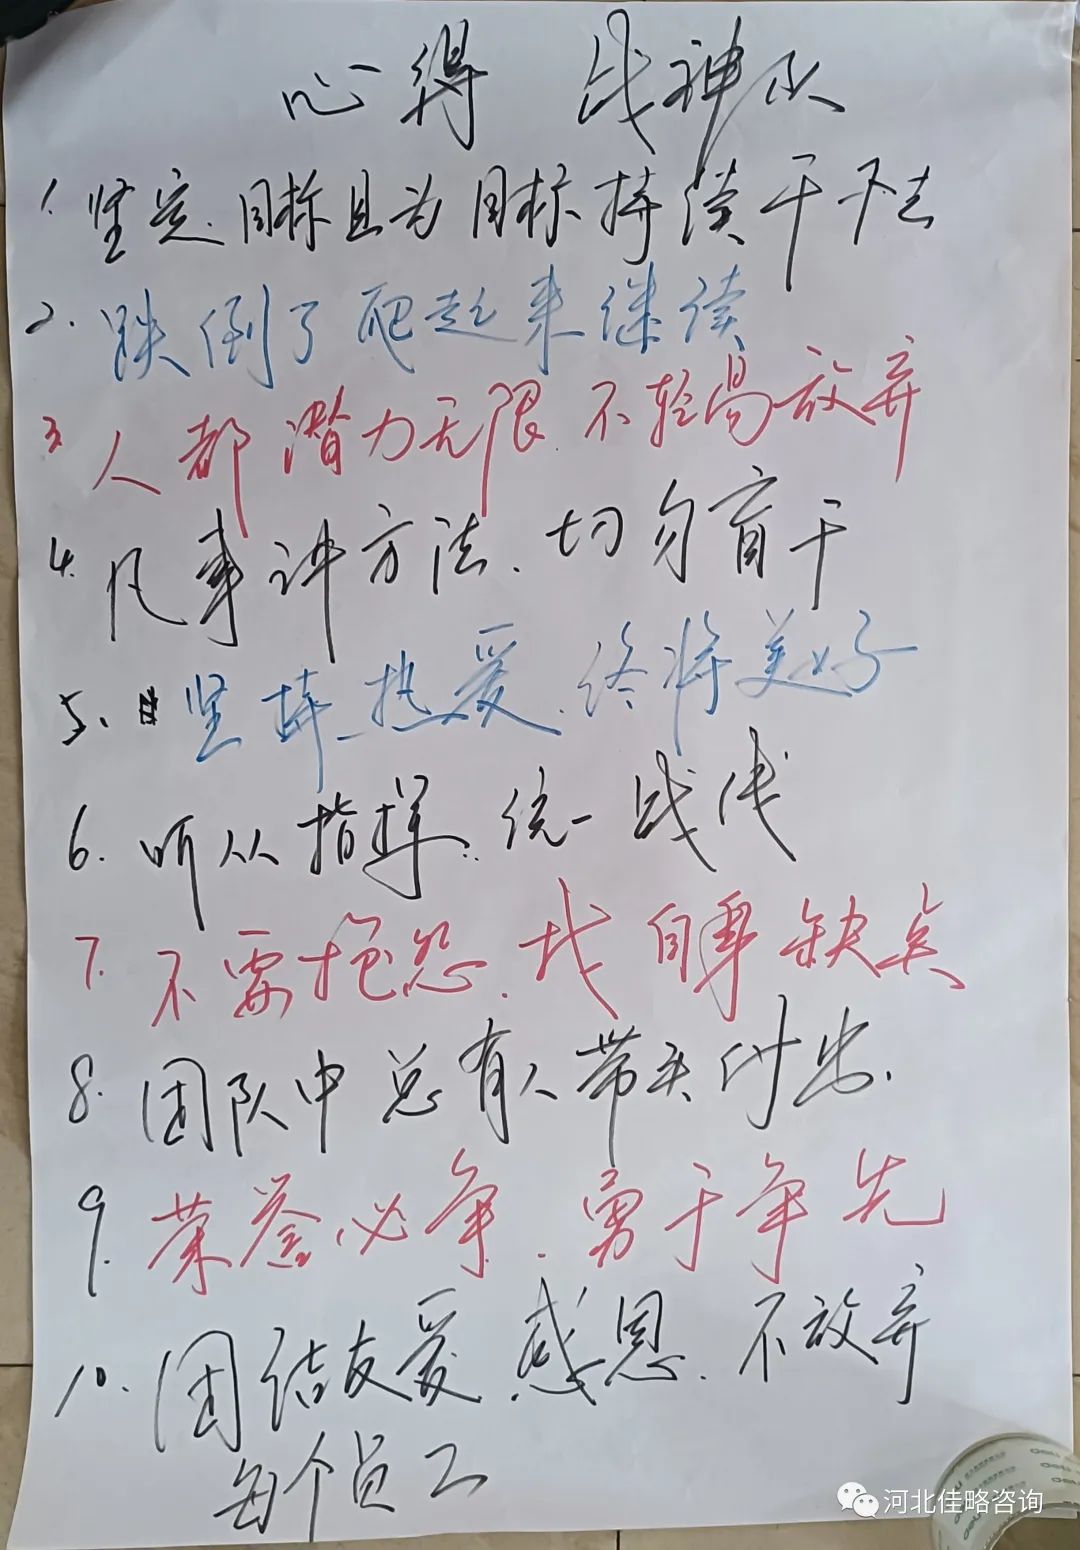 心得 战神队
1. 坚定目标且为目标持续干下去
2. 跌倒了爬起来继续
3. 人都潜力无限.不轻易放弃
4. 凡事讲方法.切勿盲干
5. 坚持热爱.终将美好
6. 听从指挥.统一战线
7. 不要抱怨.找自身缺点
8. 团队中总有人带头付出.
9. 荣誉必争.勇于争先
10. 团结友爱.感恩.不放弃
每个员工
河北佳略咨询
deli